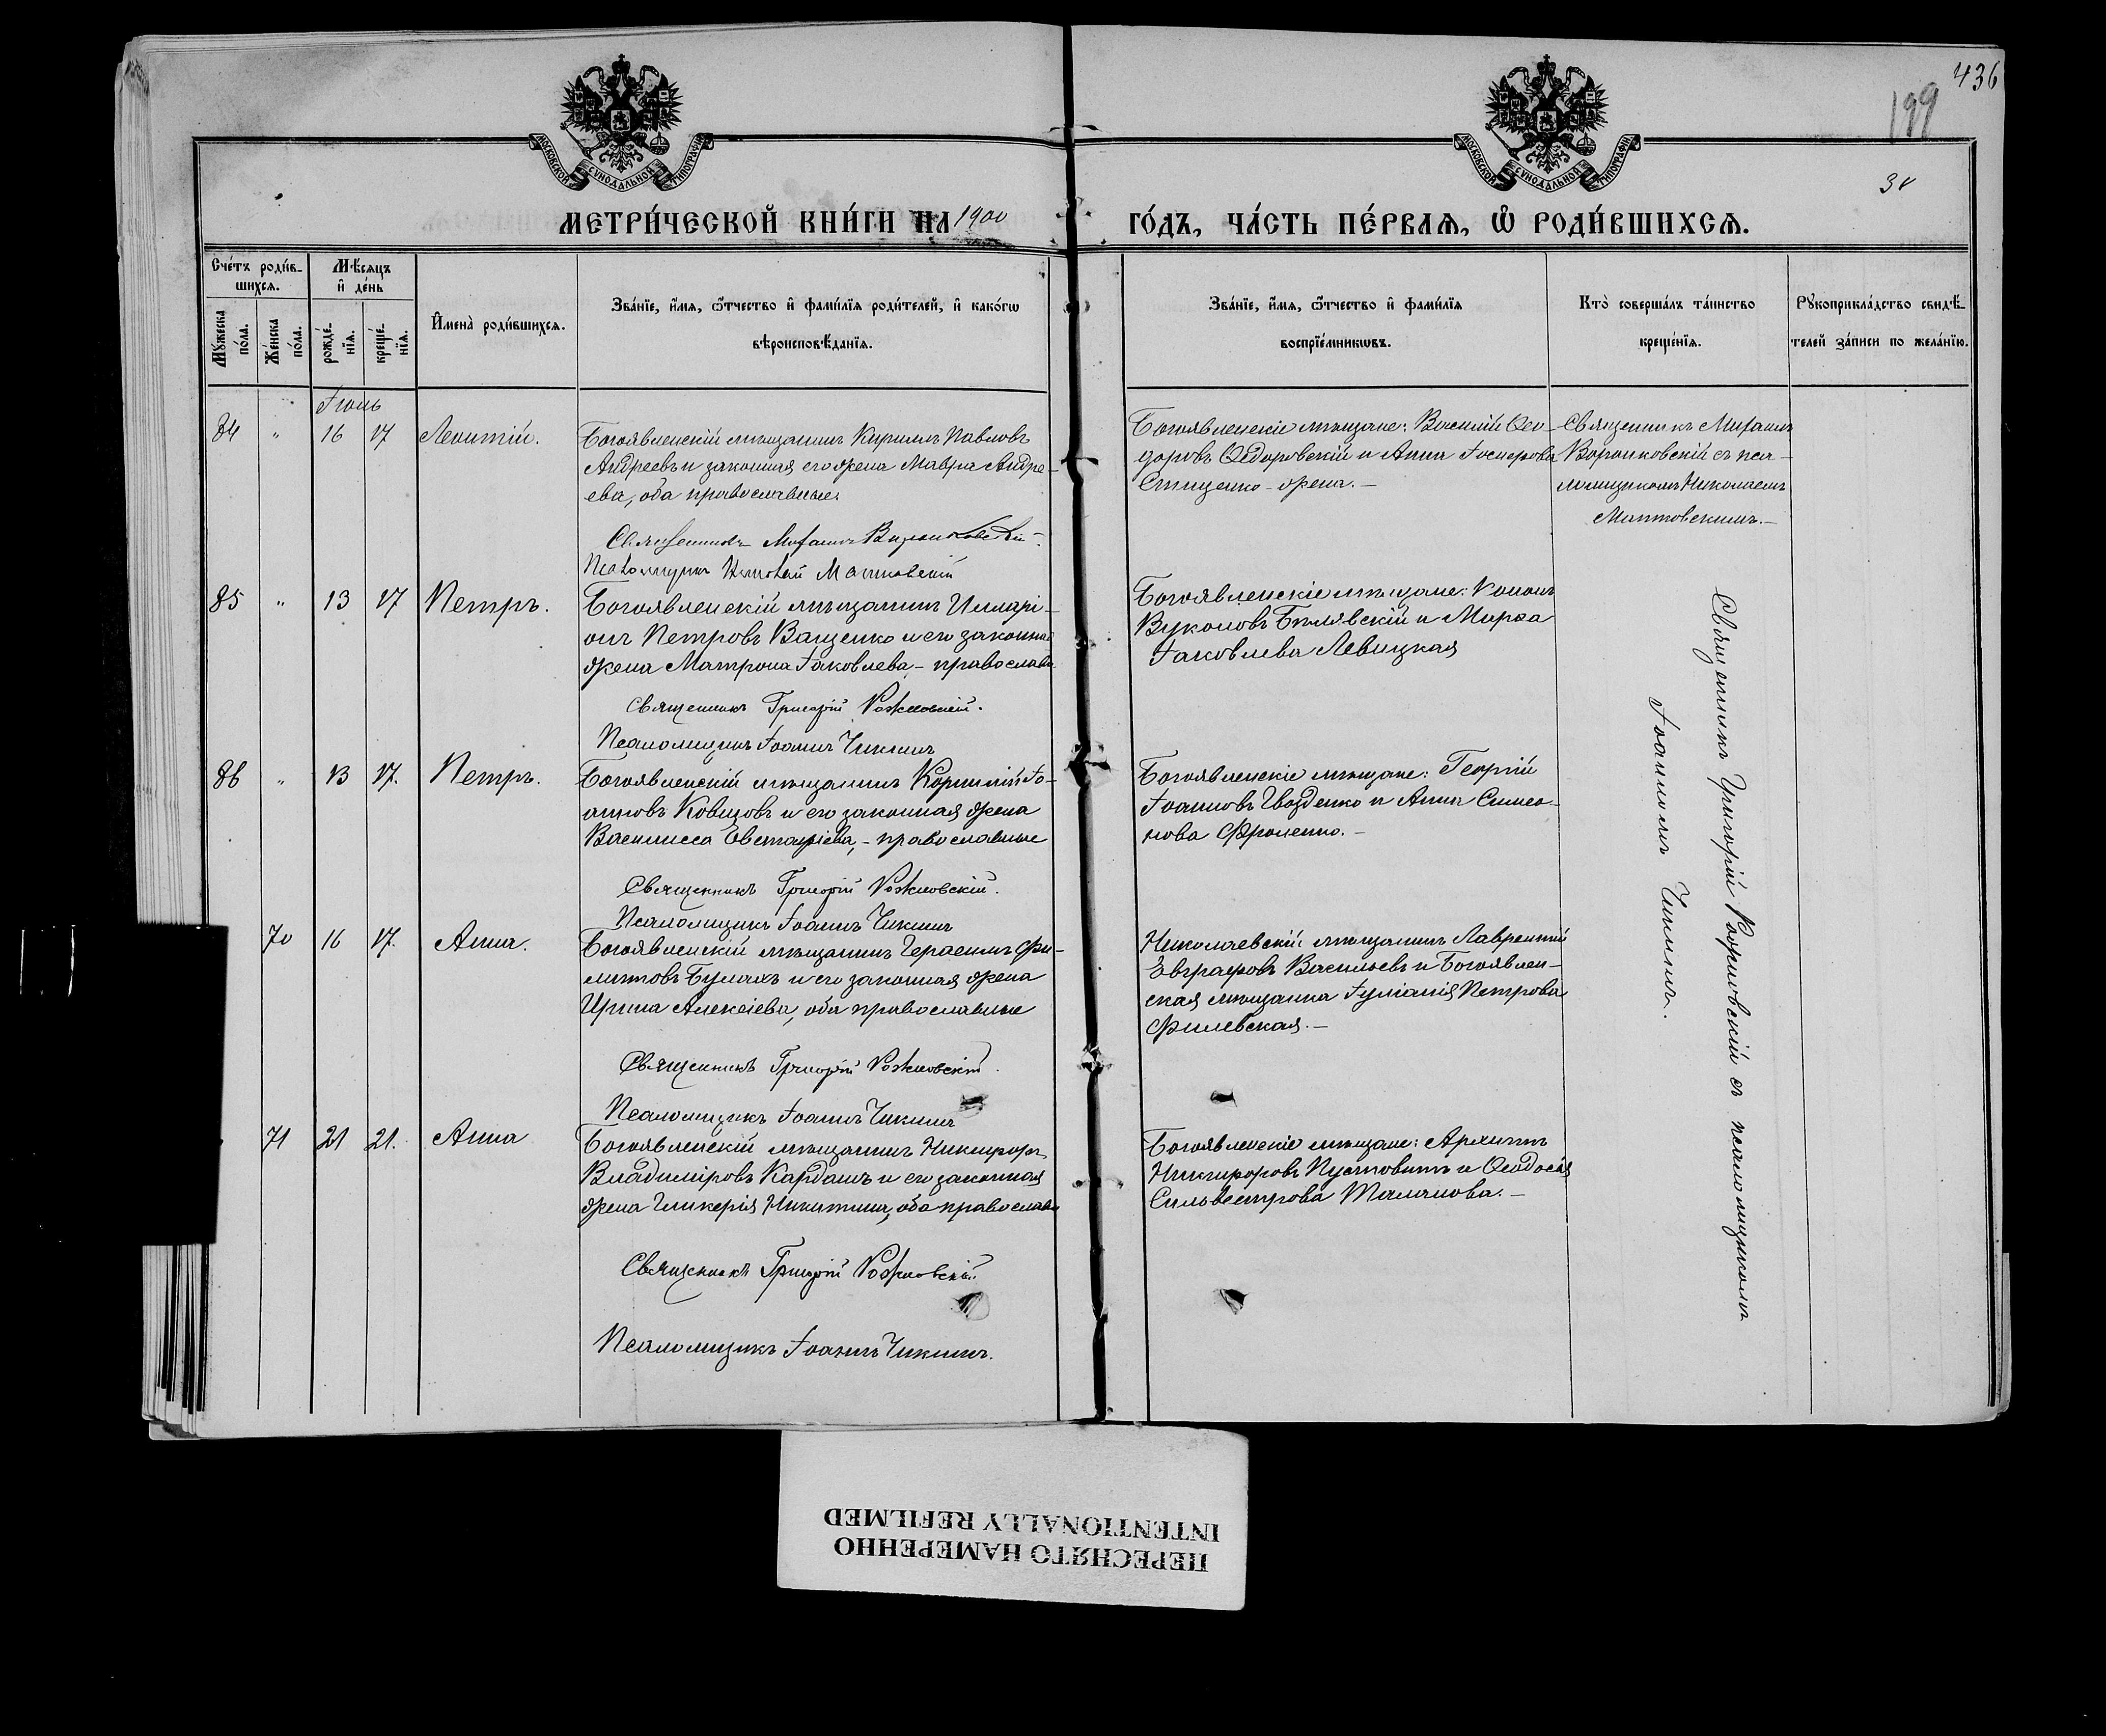 436
199
30
МОСКОВСКОЙ СѴНОДАЛЬНОЙ ТИПОГРАФІИ
МОСКОВСКОЙ СѴНОДАЛЬНОЙ ТИПОГРАФІИ
МЕТРИ́ЧЕСКОЙ КНИ́ГИ НА 1900
ГО́ДЪ, ЧА́СТЬ ПЕ́РВАѦ, Ѽ РОДИ́ВШИХСѦ.
Сче́тъ роди́в-
шихсѧ.
Мꙋ́жеска
по́ла.
Же́нска
по́ла.
Мѣ́сѧцъ
и҆ де́нь
рожде́-
нїѧ.
креще́-
нїѧ.
И҆мена̀ роди́вшихсѧ.
Зва́нїе, и҆́мѧ, ѻ҆́тчество и҆ фами́лїѧ роди́телей, и҆ како́гѡ
вѣроисповѣ́данїѧ.
Зва́нїе, и҆́мѧ, ѻ҆́тчество и҆ фами́лїѧ
воспрїе́мникѡвъ.
Кто̀ соверша́лъ та́инство
креще́нїѧ.
Рꙋкоприкла́дство свидѣ́-
телей за́писи по жела́нїю.
Іюль
84 " 16 17 Леонтій.
Богоявленскій мѣщанинъ Кириллъ Павловъ
Андреевъ и законная его жена Мавра Андре-
ева, оба православные
Священникъ Михаилъ Воронковскій.
Псаломщикъ Николай Маптовскій
Богоявленскіе мѣщане: Василій Ѳео-
доровъ Ѳедоровскій и Анна Іосифова
Стищенко-жена.-
Священникъ Михаилъ
Воронковскій съ пса-
ломщикомъ Николаемъ
Маптовскимъ.-
85 " 13 17 Петръ.
Богоявленскій мѣщанинъ Илларі-
онъ Петровъ Ващенко и его законная
жена Матрона Іаковлева,- православн
Священникъ Григорій
Псаломщикъ Іоаннъ Чикинъ
Богоявленскіе мѣщане: Кононъ
Вуколовъ Бѣлявскій и Марѳа
Іаковлева Левицкая
Священникъ Григорій съ псаломщикомъ
Іоанномъ Чикинъ.
86 " 13 17. Петръ.
Богоявленскій мѣщанинъ Корнилій Іо-
анновъ Ковцовъ и его законная жена
Василисса Евстафіева,- православные
Священникъ Григорій
Псаломщикъ Іоаннъ Чикинъ
Богоявленскіе мѣщане: Георгій
Іоанновъ Гвозденко и Анна Симео-
нова Фроленко.-
70 16 17. Анна.
Богоявленскій мѣщанинъ Герасимъ Фи-
липповъ Булахъ и его законная жена
Ирина Алексіева, оба православные
Священникъ Григорій
Псаломщикъ Іоаннъ Чикинъ
Николаевскій мѣщанинъ Лаврентій
Евграфовъ Васильевъ и Богоявлен-
ская мѣщанка Іуліанія Петрова
Филевская.-
71 21 21. Анна
Богоявленскій мѣщанинъ Никифоръ
Владиміровъ Кардашъ и его законная
жена Гликерія Никитина, оба православн
Священникъ Григорій
Псаломщикъ Іоаннъ Чикинъ.
Богоявленскіе мѣщане: Архиппъ
Никифоровъ Пустовитъ и Ѳеодосія
Сильвестрова Таланова.-
INTENTIONALLY REFILMED
ПЕРЕСНЯТО НАМЕРЕННО